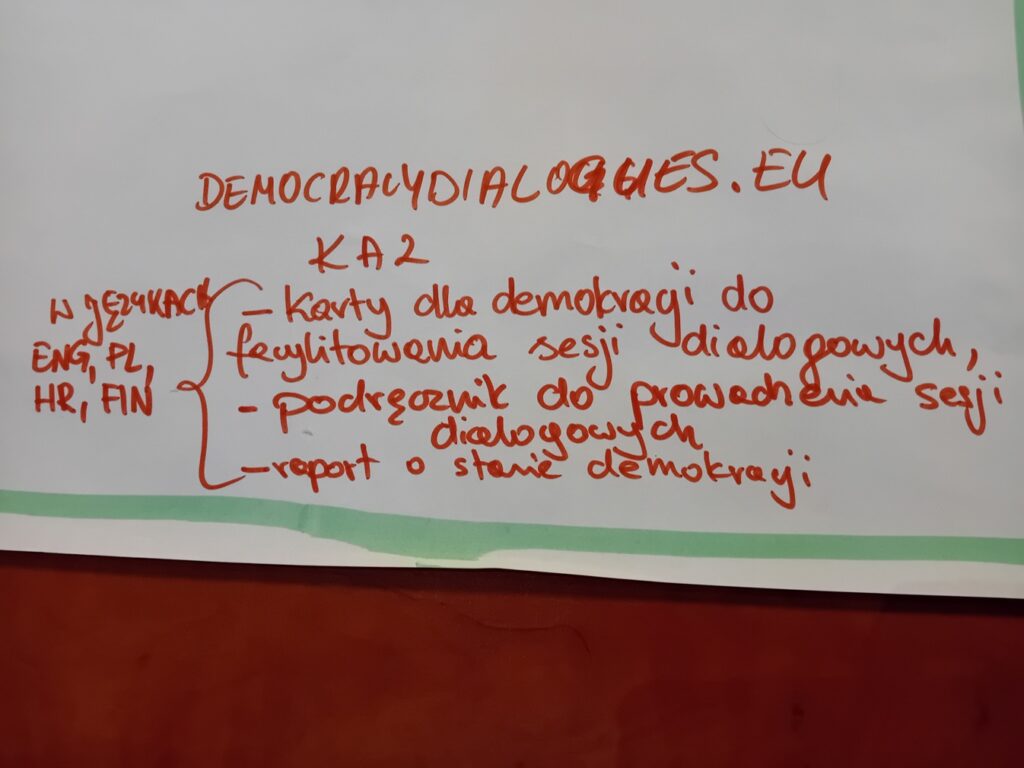 DEMOCRACYDIALOGUES.EU
KA2
W JĘZYKACH
ENG, PL,
HR, FIN
- karty dla demokracji do
facylitowania sesji dialogowych,
- podręcznik do prowadzenia sesji
dialogowych
- raport o stanie demokracji